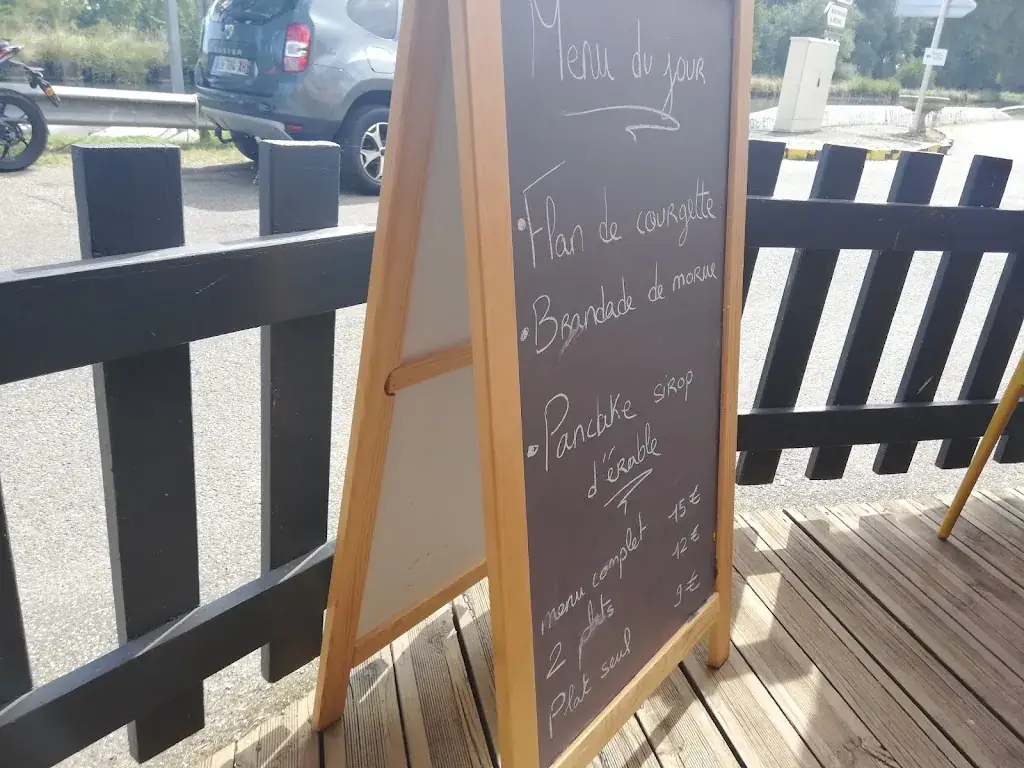 Menu du jour
• Flan de courgette
• Brandade de morue
• Pancake sirop
d'érable
menu complet 15 €
2 plats 12 €
Plat seul 9 €